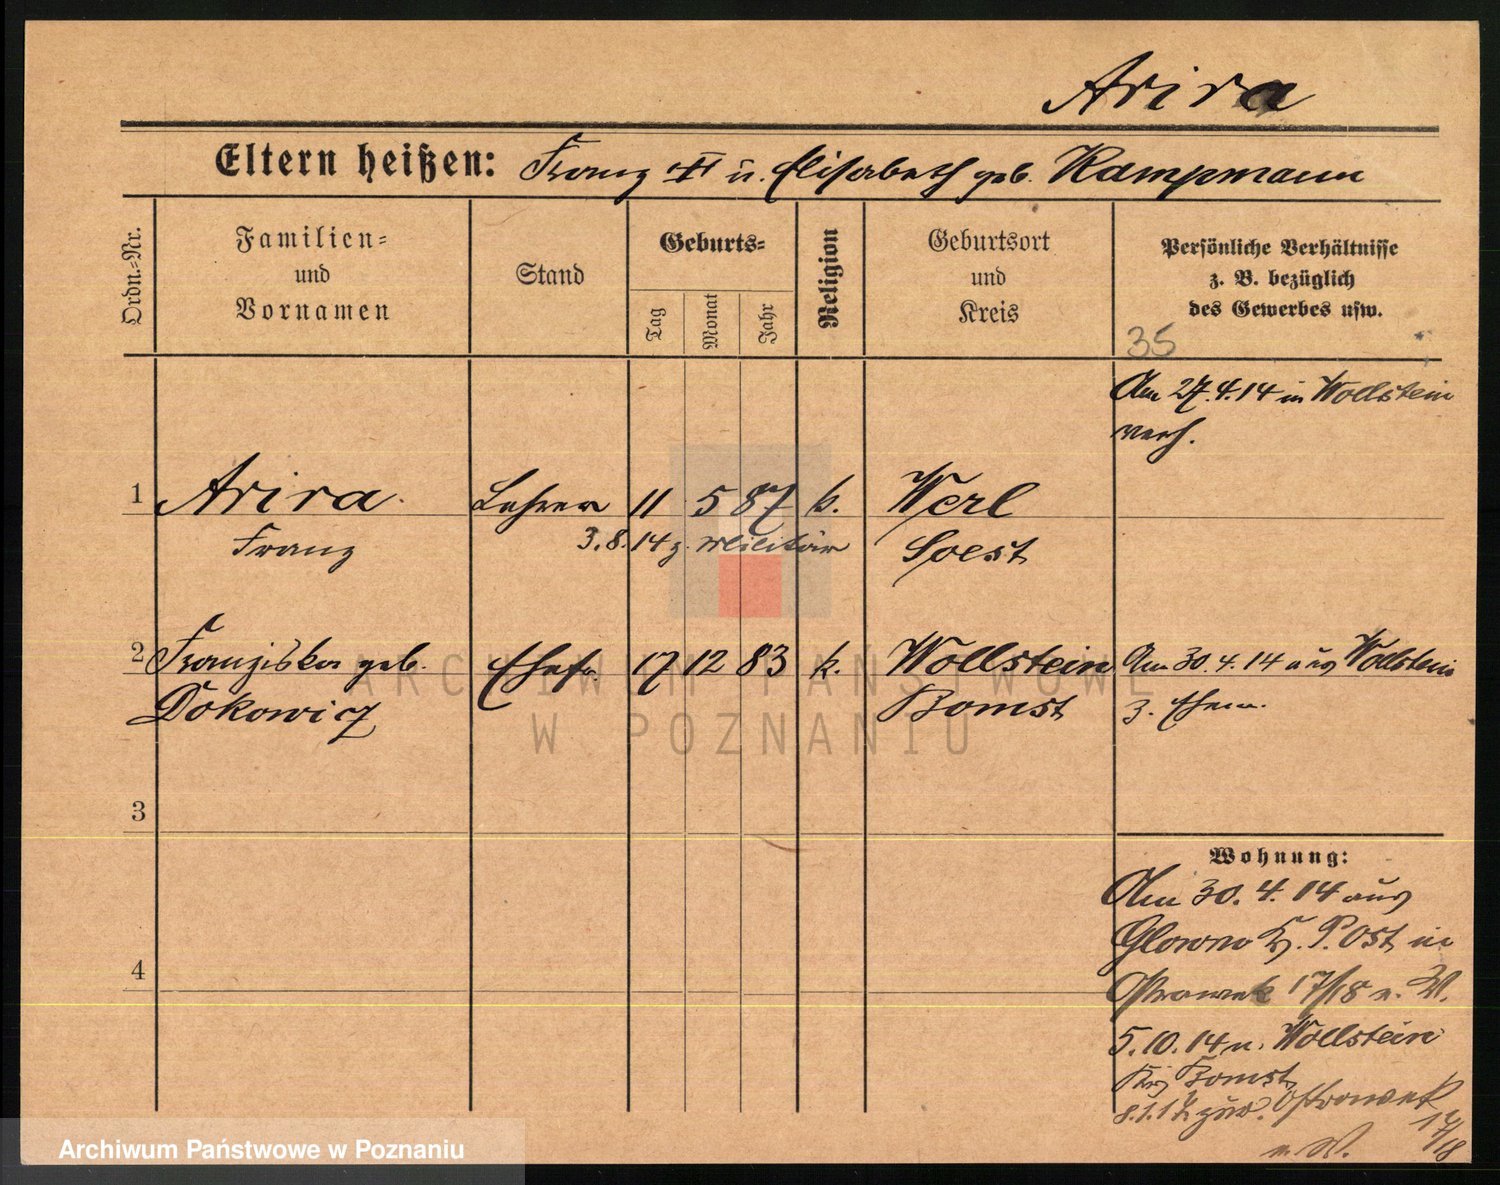 Arira
Eltern heißen: Franz u. Elisabeth geb. Kampmann
Ordn.=Nr.
Familien=
und
Vornamen
Stand
Geburts=
Tag
Monat
Jahr
Religion
Geburtsort
und
Kreis
Persönliche Verhältnisse
z. B. bezüglich
des Gewerbes usw.
35
Am 27.4.14 in Wollstein
verh.
1 Arira Lehrer 11 5 87 k. Werl
Franz 3.8.14 z. Militär Soest
2 Franziska geb. Ehefr. 17 12 83 k. Wollstein Am 30.4.14 aus Wollstein
Dokowicz Bomst z. Ehem.
3
4
Wohnung:
Am 30.4.14 aus
Glowno Kr. P. Ost in
Ostrowek 17/18 b. W.
5.10.14 n. Wollstein
Krs Bomst
8.1.1 zur. Ostrowek
17/18
b. W.
ARCHIWUM PAŃSTWOWE
W POZNANIU
Archiwum Państwowe w Poznaniu